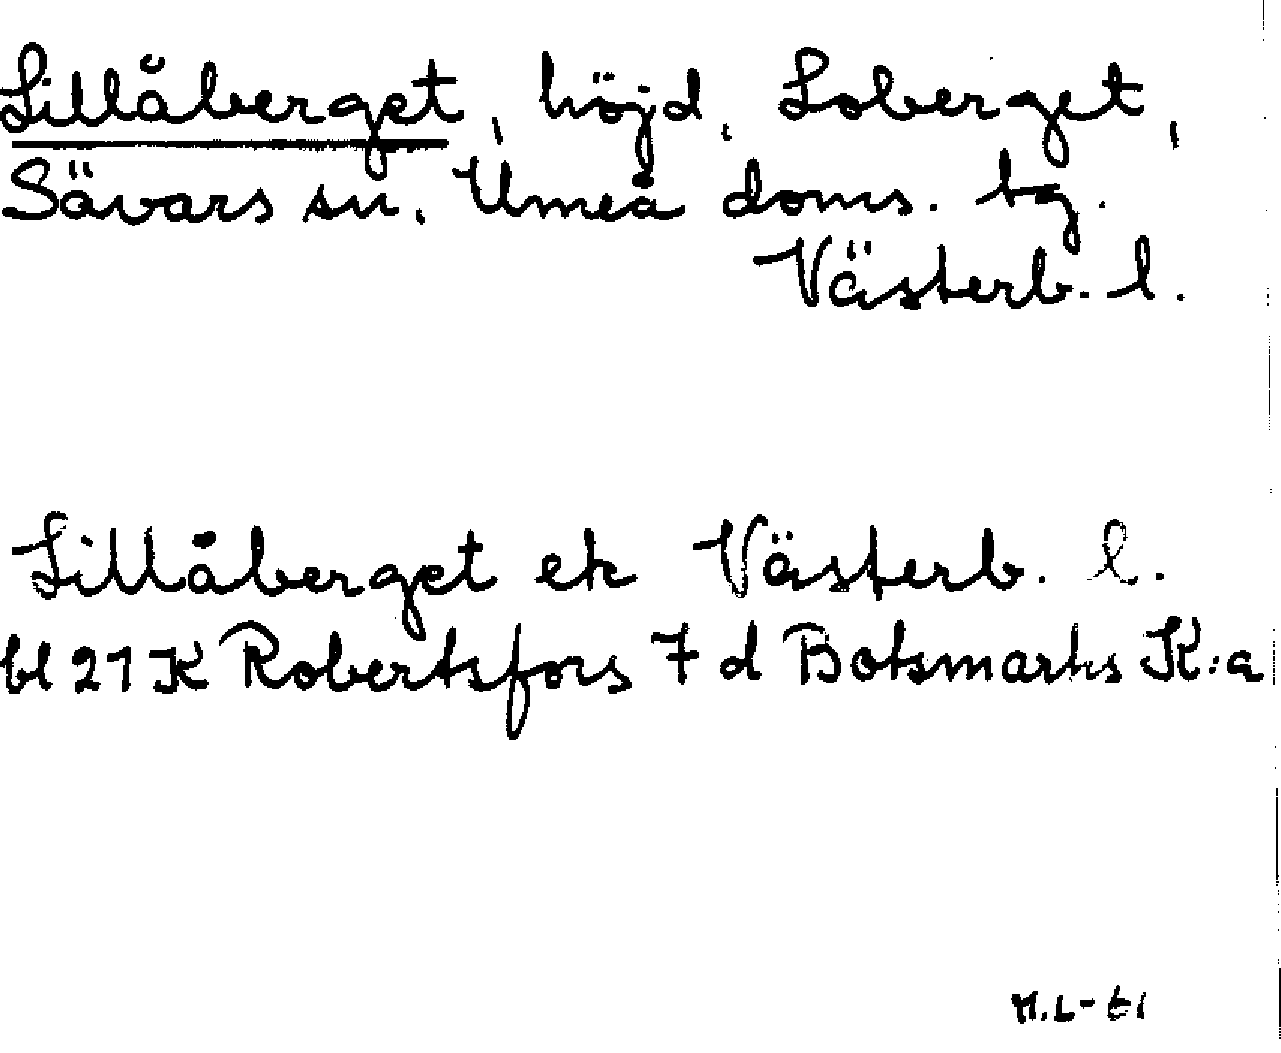 Lillåberget, höjd, Loberget,
Sävars sn, Umeå doms. tg.
Västerb. l.
Lillåberget ek Västerb. l.
bl 21 K Robertsfors 7 d Botsmarks K:a
M.L-61